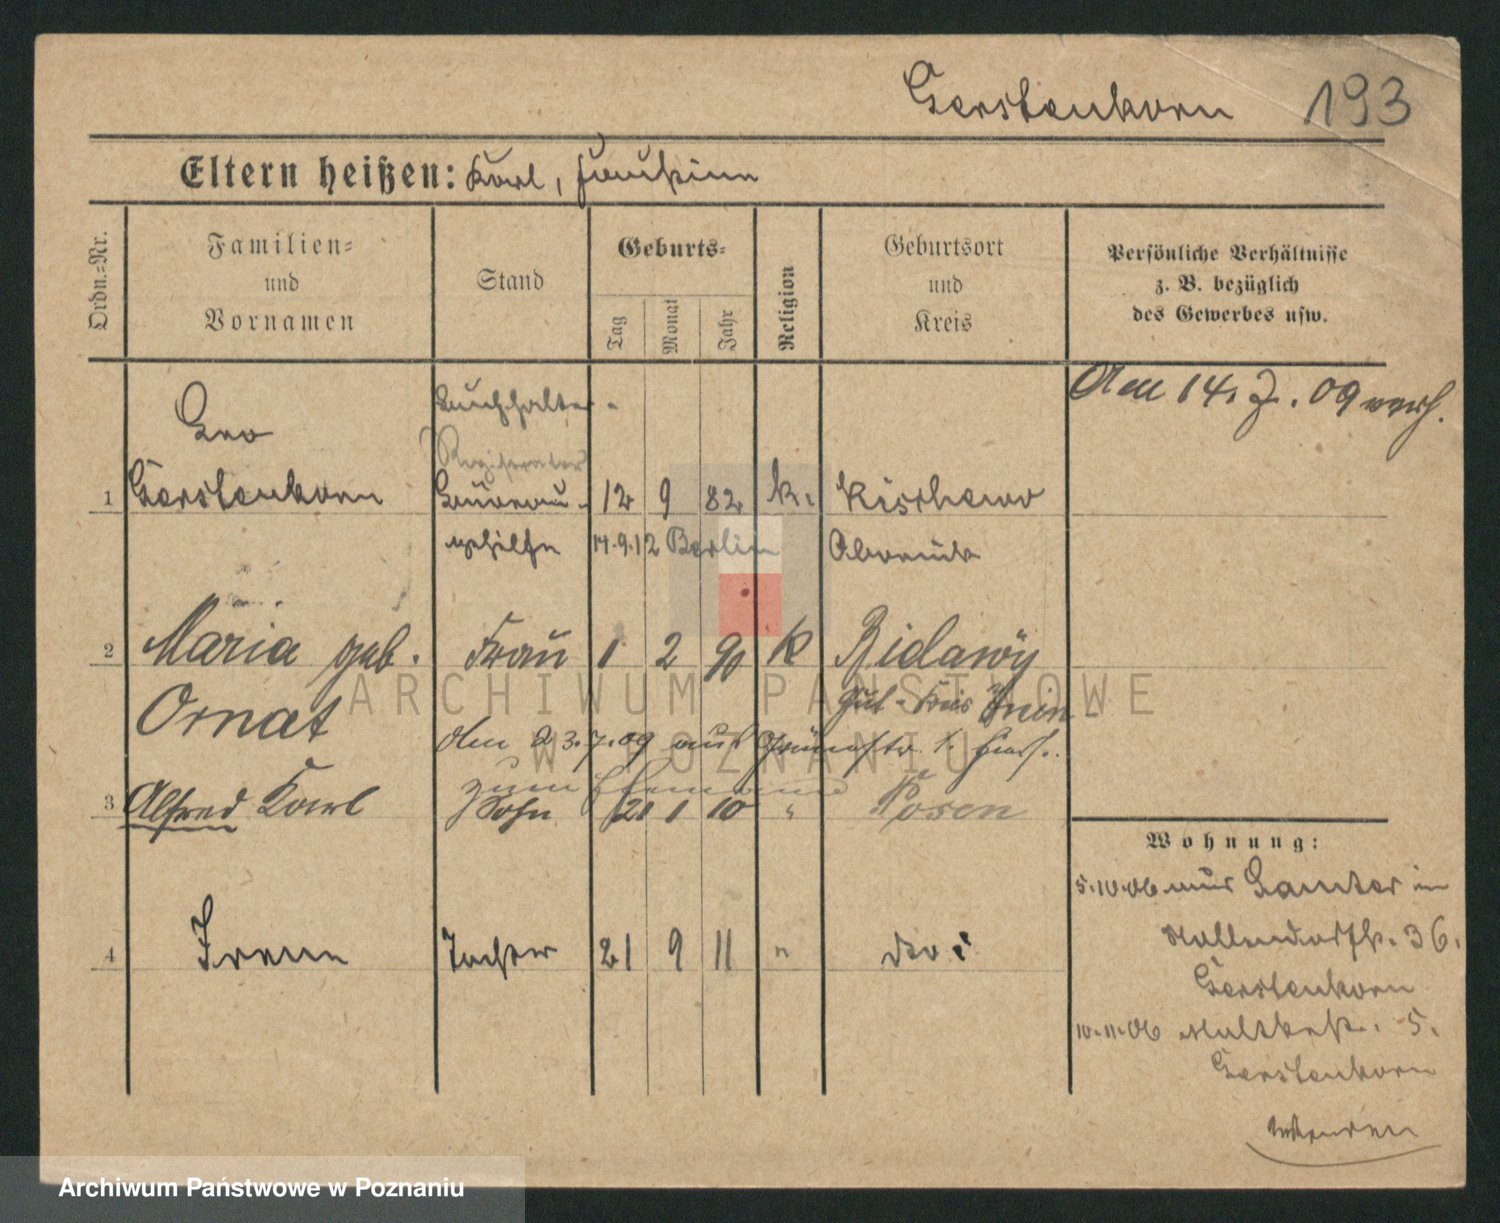 Gerstenkorn 193
Eltern heißen: Karl,
Ordn.=Nr.
Familien=
und
Vornamen
Stand
Geburts=
Tag
Monat
Jahr
Religion
Geburtsort
und
Kreis
Persönliche Verhältnisse
z. B. bezüglich
des Gewerbes usw.
Am 14. 7. 09 verh.
Leo
Buchhalter
Registrator
1 Gerstenkorn Büreau- 12 9 82 k. Kischewo
gehilfe 14.9.12 Berlin Obornik
2 Maria geb. Frau 1 2 90 k Zidawy
Ornat Gut - Kreis Znin
Am 23.7.09 aus 1.
zum Ehemann
3 Alfred Karl Sohn 21 1 10 " Posen
Wohnung:
5.10.06 aus Samter in
36.
4 Irene Tochter 21 9 11 " dto
Gerstenkorn
10.11.06 5.
Gerstenkorn
wenden
ARCHIWUM PAŃSTWOWE
W POZNANIU
Archiwum Państwowe w Poznaniu